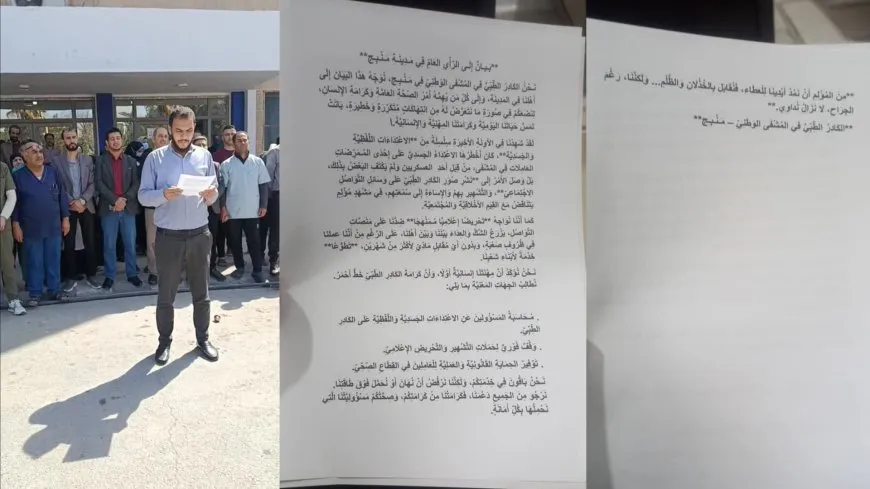 **بَيَانٌ إِلَى الرَّأْيِ العَامِّ فِي مَدِينَةِ مَنْبِج**
نَحْنُ الكَادِرُ الطِّبِّيُّ فِي المَشْفَى الوَطَنِيِّ فِي مَنْبِج، نُوَجِّهُ هَذَا البَيَانَ إِلَى
أَهْلِنَا فِي المَدِينَةِ، وَإِلَى كُلِّ مَنْ يَهُمُّهُ أَمْرُ الصِّحَّةِ العَامَّةِ وَكَرَامَةِ الإِنْسَانِ،
لِنَضَعَكُمْ فِي صُورَةِ مَا نَتَعَرَّضُ لَهُ مِنِ انْتِهَاكَاتٍ مُتَكَرِّرَةٍ وَخَطِيرَةٍ، بَاتَتْ
تَمَسُّ حَيَاتَنَا اليَوْمِيَّةَ وَكَرَامَتَنَا المِهَنِيَّةَ وَالإِنْسَانِيَّةَ.\
لَقَدْ شَهِدْنَا فِي الآوِنَةِ الأَخِيرَةِ سِلْسِلَةً مِنَ **الاعْتِدَاءَاتِ اللَّفْظِيَّةِ
وَالجَسَدِيَّةِ**، كَانَ أَخْطَرُهَا الاعْتِدَاءُ الجَسَدِيُّ عَلَى إِحْدَى المُمَرِّضَاتِ
العَامِلَاتِ فِي المَشْفَى، مِنْ قِبَلِ أَحَدِ العَسْكَرِيِّينَ وَلَمْ يَكْتَفِ البَعْضُ بِذَلِكَ،
بَلْ وَصَلَ الأَمْرُ إِلَى **نَشْرِ صُوَرِ الكَادِرِ الطِّبِّيِّ عَلَى وَسَائِلِ التَّوَاصُلِ
الاجْتِمَاعِيِّ**، وَالتَّشْهِيرِ بِهِمْ وَالإِسَاءَةِ إِلَى سُمْعَتِهِمْ، فِي مَشْهَدٍ مُؤْلِمٍ
يَتَنَاقَضُ مَعَ القِيَمِ الأَخْلَاقِيَّةِ وَالمُجْتَمَعِيَّةِ.
كَمَا أَنَّنَا نُوَاجِهُ **تَحْرِيضًا إِعْلَامِيًّا مُمَنْهَجًا** ضِدَّنَا عَلَى مَنَصَّاتِ
التَّوَاصُلِ، يَزْرَعُ الشَّكَّ وَالعَدَاءَ بَيْنَنَا وَبَيْنَ أَهْلِنَا، عَلَى الرَّغْمِ مِنْ أَنَّنَا عَمِلْنَا
فِي ظُرُوفٍ صَعْبَةٍ، وَبِدُونِ أَيِّ مُقَابِلٍ مَادِّيٍّ لِأَكْثَرَ مِنْ شَهْرَيْنِ، **تَطَوُّعًا**
خِدْمَةً لِأَبْنَاءِ شَعْبِنَا.
نَحْنُ نُؤَكِّدُ أَنَّ مِهْنَتَنَا إِنْسَانِيَّةٌ أَوَّلًا، وَأَنَّ كَرَامَةَ الكَادِرِ الطِّبِّيِّ خَطٌّ أَحْمَرُ.
نُطَالِبُ الجِهَاتِ المَعْنِيَّةَ بِمَا يَلِي:
. مُحَاسَبَةُ المَسْؤُولِينَ عَنِ الاعْتِدَاءَاتِ الجَسَدِيَّةِ وَاللَّفْظِيَّةِ عَلَى الكَادِرِ
الطِّبِّيِّ.
. وَقْفٌ فَوْرِيٌّ لِحَمَلَاتِ التَّشْهِيرِ وَالتَّحْرِيضِ الإِعْلَامِيِّ.
. تَوْفِيرُ الحِمَايَةِ القَانُونِيَّةِ وَالعَمَلِيَّةِ لِلْعَامِلِينَ فِي القِطَاعِ الصِّحِّيِّ.
نَحْنُ بَاقُونَ فِي خِدْمَتِكُمْ، وَلَكِنَّنَا نَرْفُضُ أَنْ نُهَانَ أَوْ نُحَمَّلَ فَوْقَ طَاقَتِنَا.
نَرْجُو مِنَ الجَمِيعِ دَعْمَنَا، فَكَرَامَتُنَا مِنْ كَرَامَتِكُمْ، وَصِحَّتُكُمْ مَسْؤُولِيَّتُنَا الَّتِي
نَحْمِلُهَا بِكُلِّ أَمَانَةٍ.
**مِنَ المُؤْلِمِ أَنْ نَمُدَّ أَيْدِيَنَا لِلْعَطَاءِ، فَنُقَابَلَ بِالخُذْلَانِ وَالظُّلْمِ... وَلَكِنَّنَا، رَغْمَ
الجِرَاحِ، لَا نَزَالُ نُدَاوِي.**
**الكَادِرُ الطِّبِّيُّ فِي المَشْفَى الوَطَنِيِّ – مَنْبِج**